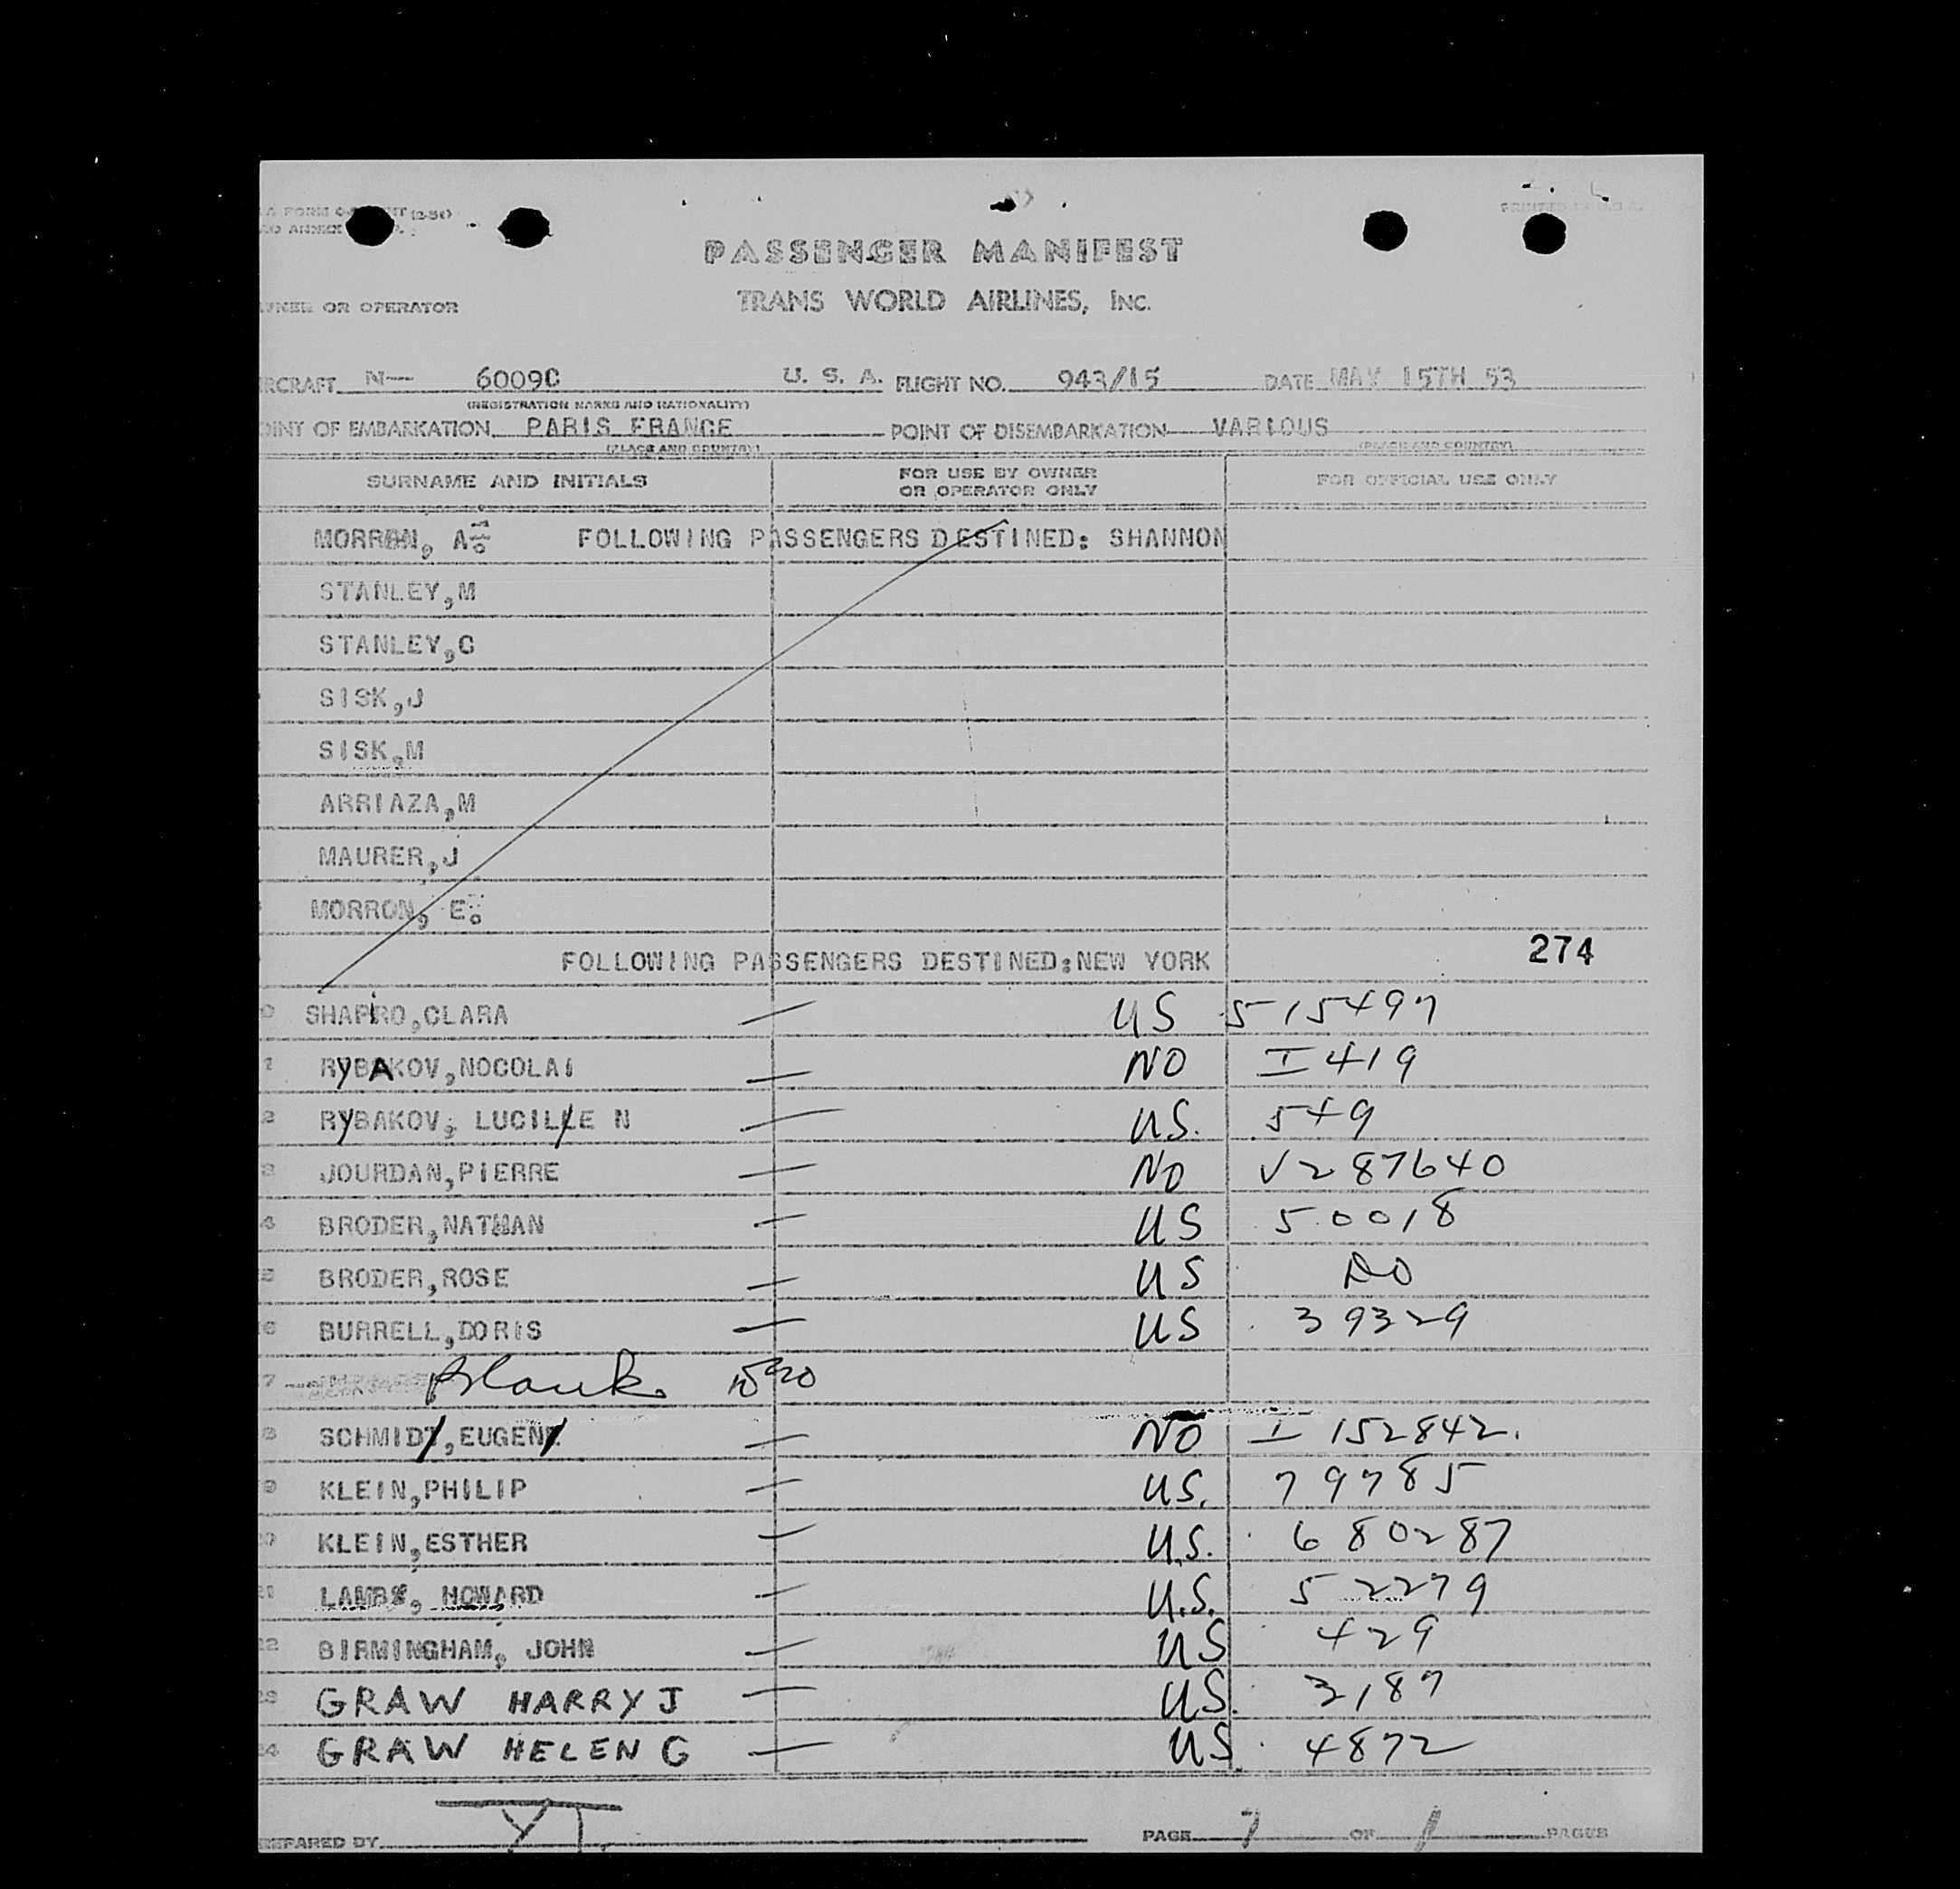 PASSENGER MANIFEST
TRANS WORLD AIRLINES, INC.
OWNER OR OPERATOR
AIRCRAFT N— 6009C U. S. A. FLIGHT NO. 943/15 DATE MAY 15TH 53
(REGISTRATION MARKS AND NATIONALITY)
POINT OF EMBARKATION PARIS FRANCE POINT OF DISEMBARKATION VARIOUS
(PLACE AND COUNTRY) (PLACE AND COUNTRY)
SURNAME AND INITIALS FOR USE BY OWNER OR OPERATOR ONLY FOR OFFICIAL USE ONLY
MORRON, A. FOLLOWING PASSENGERS DESTINED: SHANNON
STANLEY,M
STANLEY,G
SISK,J
SISK,M
ARRIAZA,M
MAURER,J
MORRON, E.
FOLLOWING PASSENGERS DESTINED:NEW YORK 274
SHAPIRO,CLARA — US 515497
RYBAKOV,NOCOLAI — NO I 419
RYBAKOV, LUCILE N — US. 549
JOURDAN,PIERRE — NO V287640
BRODER,NATHAN — US 50018
BRODER,ROSE — US DO
BURRELL,DORIS — US 39329
17 Blank
SCHMID,EUGEN — NO I 152842.
KLEIN,PHILIP — U.S. 79785
KLEIN,ESTHER — U.S. 680287
LAMB, HOWARD — U.S. 52279
22 BIRMINGHAM, JOHN — US 429
23 GRAW HARRY J — U.S. 3187
24 GRAW HELEN G — US 4872
PREPARED BY YT. PAGE 1 OF 1 PAGES